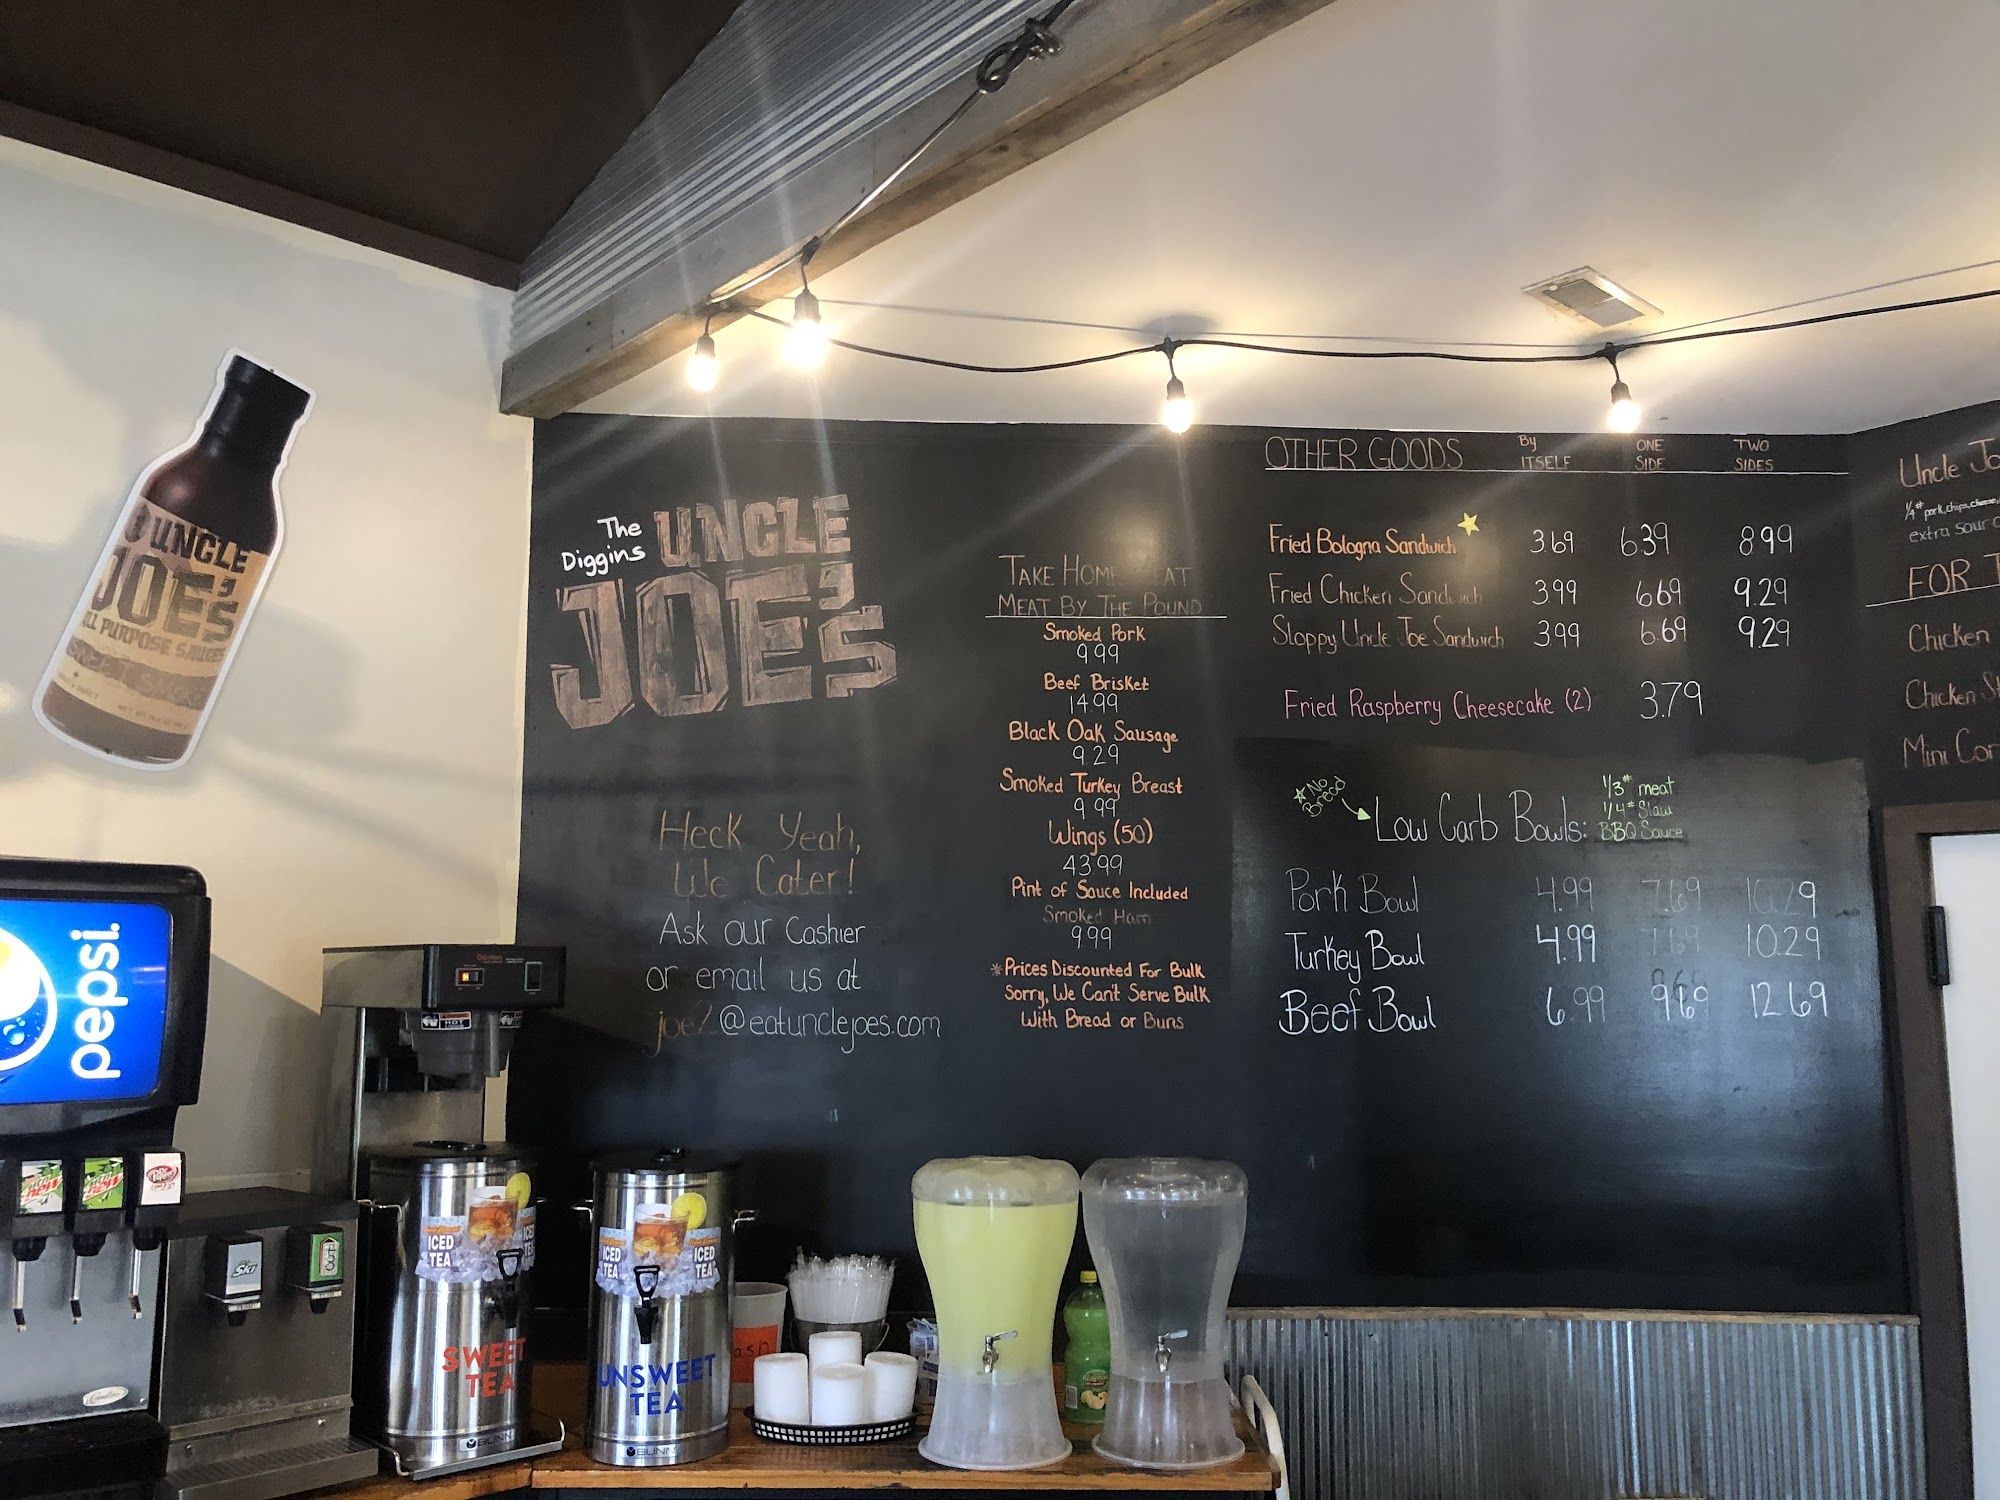 UNCLE
JOE'S
ALL PURPOSE SAUCES
SWEET SMOKE
pepsi.
The
Diggins
UNCLE
JOE'S
Heck Yeah,
We Cater!
Ask our Cashier
or email us at
joe2@eatunclejoes.com
TAKE HOME MEAT
MEAT BY THE POUND
Smoked Pork
9.99
Beef Brisket
14.99
Black Oak Sausage
9.29
Smoked Turkey Breast
9.99
Wings (50)
43.99
Pint of Sauce Included
Smoked Ham
9.99
*Prices Discounted For Bulk
Sorry, We Can't Serve Bulk
With Bread or Buns
OTHER GOODS By ITSELF ONE SIDE TWO SIDES
Fried Bologna Sandwich 3.69 6.39 8.99
Fried Chicken Sandwich 3.99 6.69 9.29
Sloppy Uncle Joe Sandwich 3.99 6.69 9.29
Fried Raspberry Cheesecake (2) 3.79
*No
Bread
Low Carb Bowls:
1/3# meat
1/4# Slaw
BBQ Sauce
Pork Bowl 4.99 7.69 10.29
Turkey Bowl 4.99 7.69 10.29
Beef Bowl 6.99 9.69 12.69
Uncle Jo
1/4# pork, chips, cheese,
extra sour
FOR
Chicken
Chicken St
Mini Cor
HOT
Ski
ICED
TEA
SWEET
TEA
BUNN
ICED
TEA
ICED
TEA
UNSWEET
TEA
BUNN